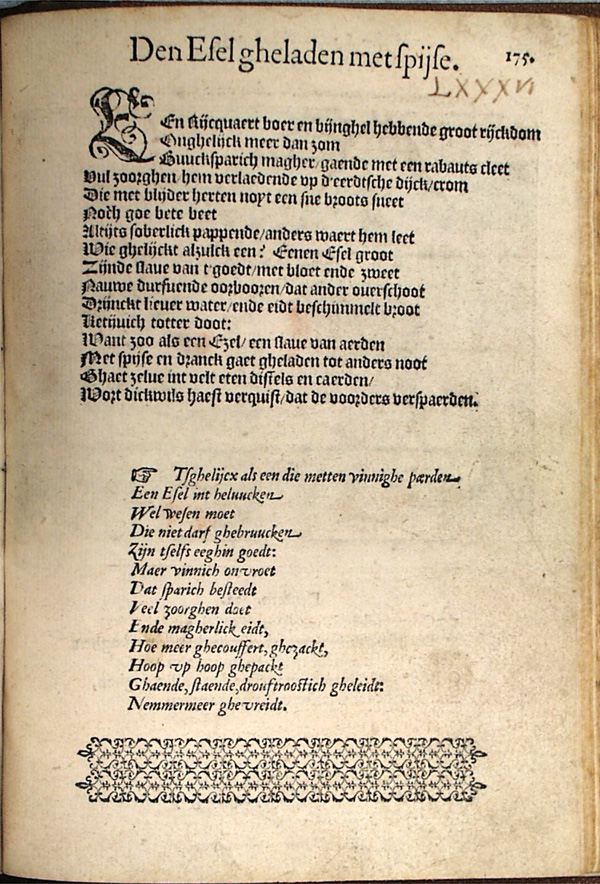 Den Esel gheladen met spijse.
175.
LXXXVI
EEn Rijcquaert boer en bijnghel hebbende groot rijckdom
Onghelijck meer dan zom
Buucksparich magher/gaende met een rabauts cleet
Vul zoorghen/hem verlaedende vp d'eerdtsche dijck/crom
Die met blijder herten noyt een sne broots sneet
Noch goe bete beet
Altijts soberlick pappende/anders waert hem leet
Wie ghelijckt alzulck een? Eenen Esel groot
Zijnde slaue van t'goedt/met bloet ende zweet
Nauwe dursuende oorbooren/dat ander ouerschoot
Drijnckt lieuer water/ende eidt beschimmelt broot
Ketijuich totter doot:
Want zoo als een Ezel/een slaue van aerden
Met spijse en dranck gaet gheladen tot anders noot
Ghaet zelue int velt eten distels en caerden/
Wort dickwils haest verquist/dat de voorders verspaerden.
☞ Tsghelijcx als een die metten vinnighe pærden
Een Esel int heluucken
Wel wesen moet
Die niet darf ghebruucken
Zijn tselfs eeghin goedt:
Maer vinnich onvroet
Dat sparich besteedt
Veel zoorghen doet
Ende magherlick eidt,
Hoe meer ghecouffert, ghezackt,
Hoop vp hoop ghepackt
Ghaende, staende, drouftroostich gheleidt:
Nemmermeer ghevreidt.